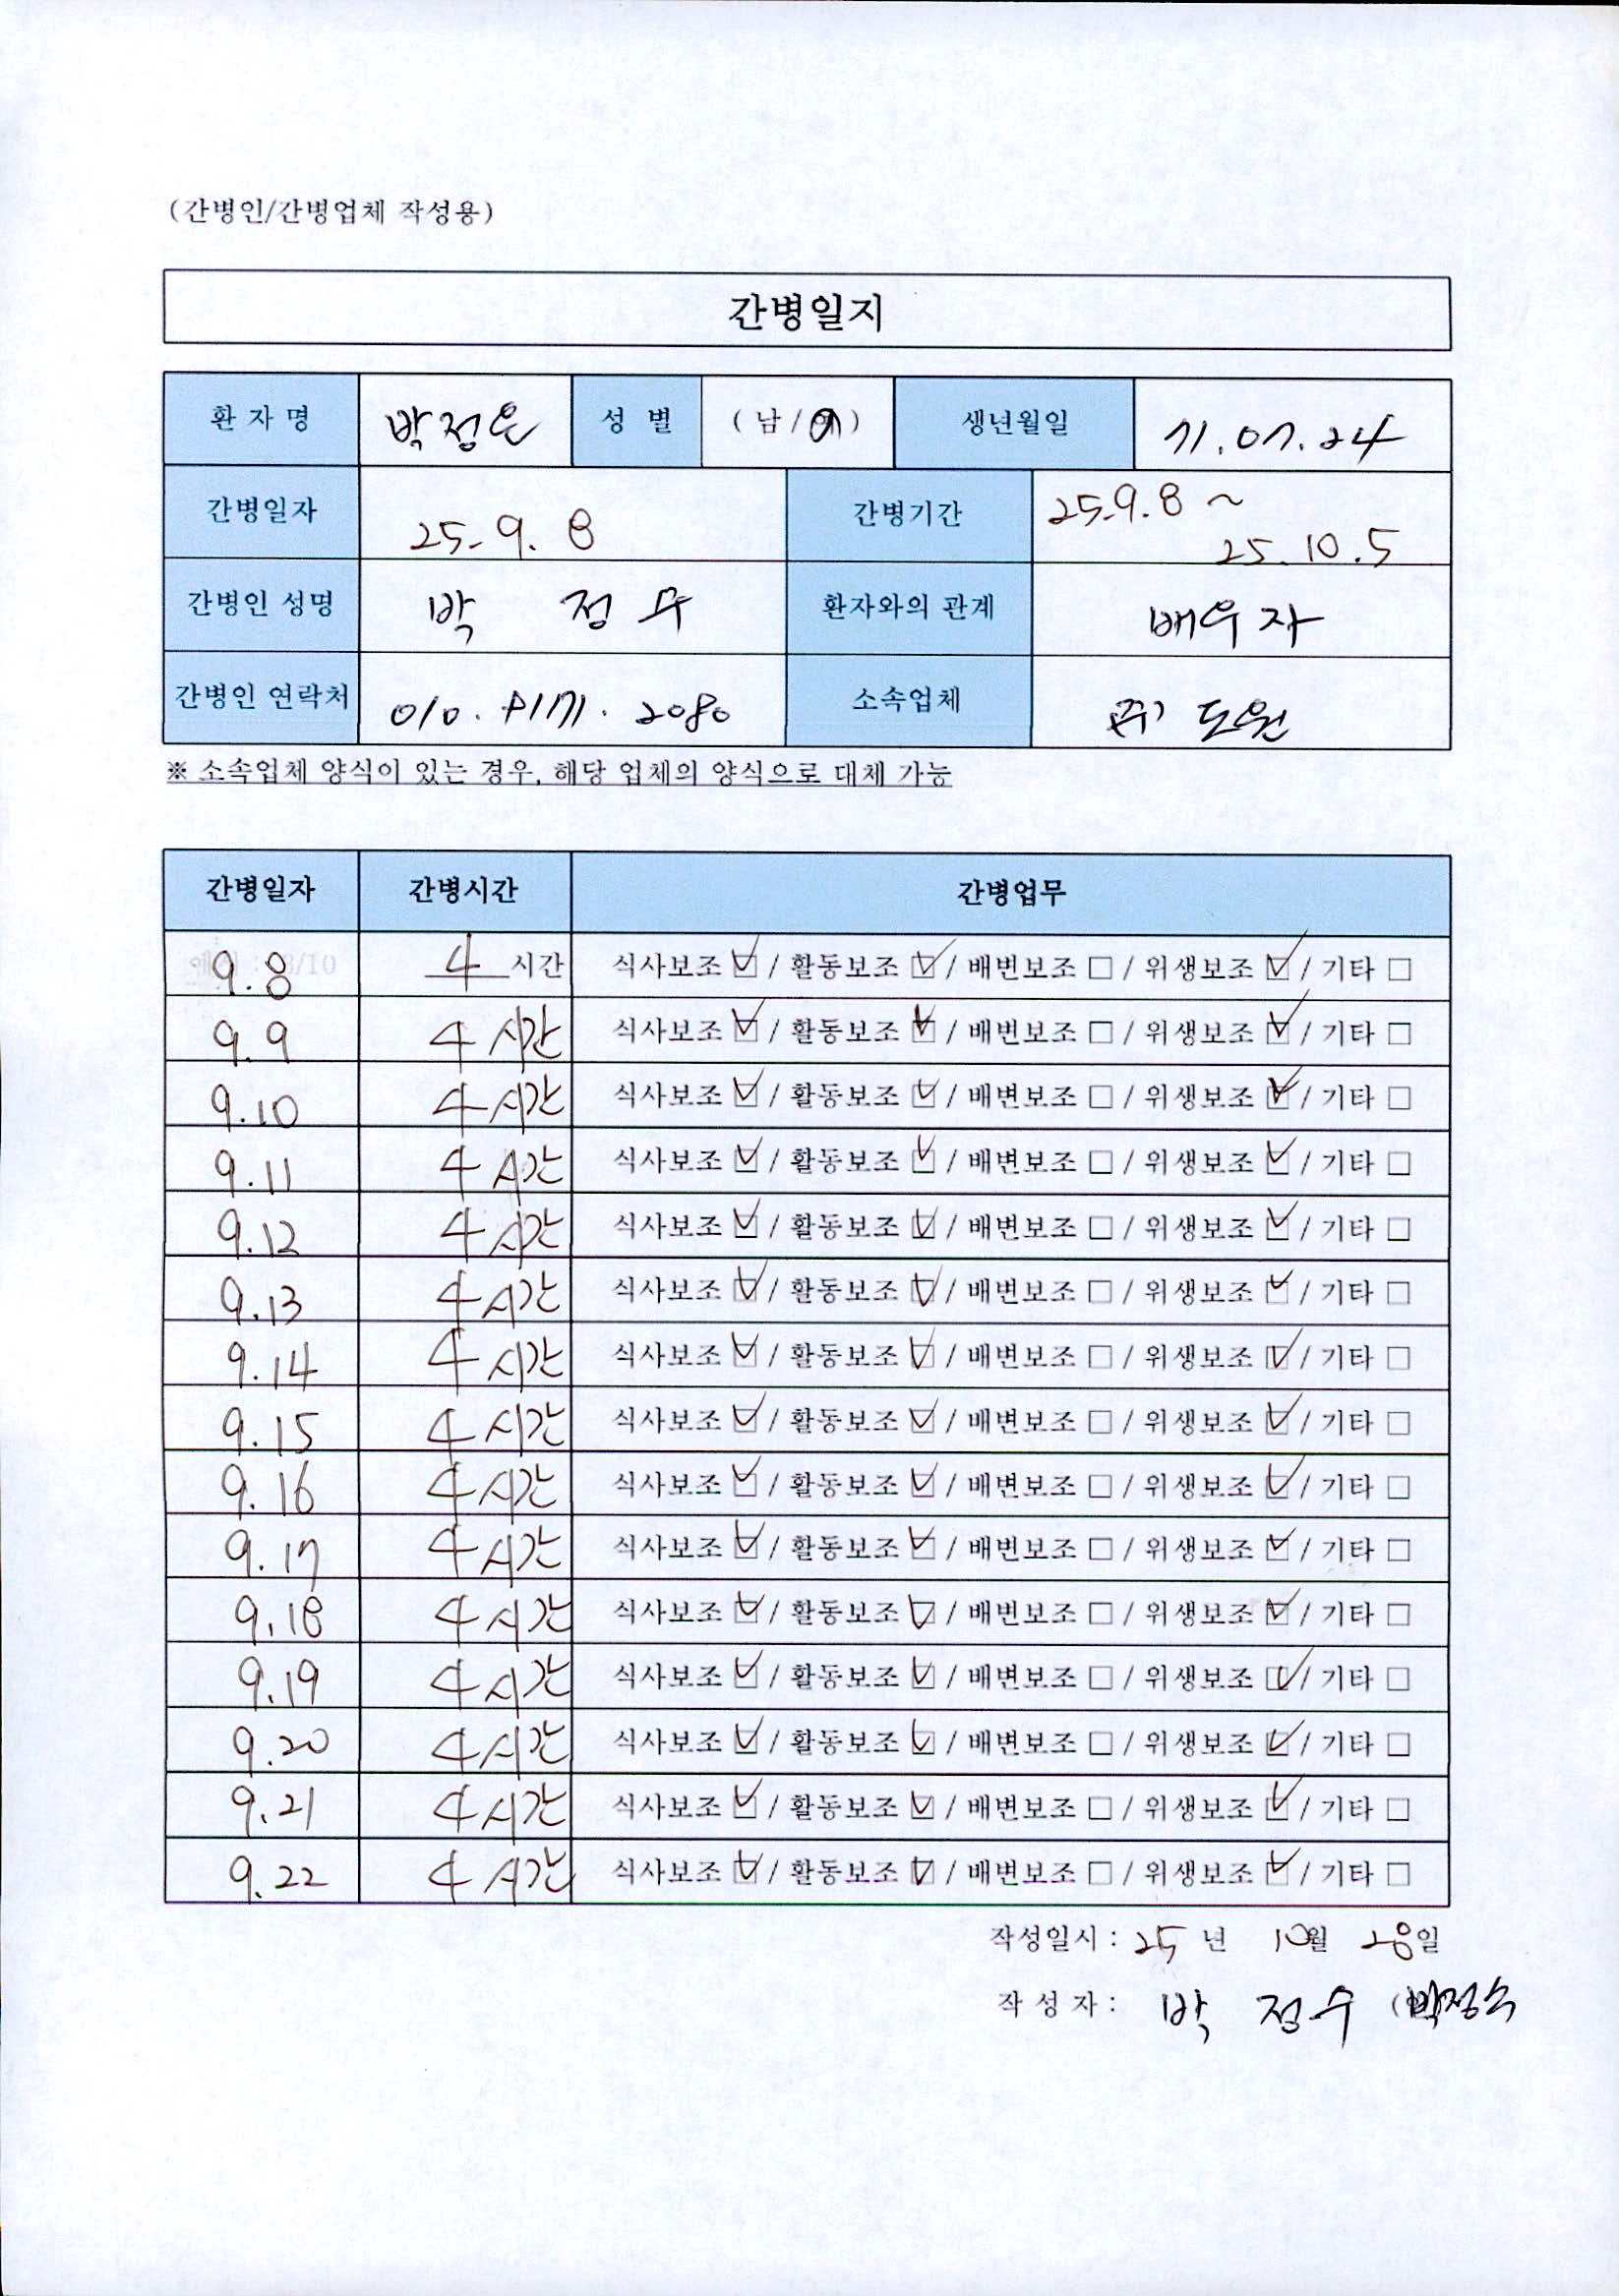 (간병인/간병업체 작성용)
간병일지
환 자 명 박정은 성 별 ( 남 / 여 ) 생년월일 71.07.24
간병일자 25.9.8 간병기간 25.9.8 ~ 25.10.5
간병인 성명 박 정 수 환자와의 관계 배우자
간병인 연락처 010. 2080 소속업체 (주) 도원
※ 소속업체 양식이 있는 경우, 해당 업체의 양식으로 대체 가능
간병일자 간병시간 간병업무
9.8 4 시간 식사보조 ☑ / 활동보조 ☑ / 배변보조 □ / 위생보조 ☑ / 기타 □
9.9 4 시간 식사보조 ☑ / 활동보조 ☑ / 배변보조 □ / 위생보조 ☑ / 기타 □
9.10 4 시간 식사보조 ☑ / 활동보조 ☑ / 배변보조 □ / 위생보조 ☑ / 기타 □
9.11 4 시간 식사보조 ☑ / 활동보조 ☑ / 배변보조 □ / 위생보조 ☑ / 기타 □
9.12 4 시간 식사보조 ☑ / 활동보조 ☑ / 배변보조 □ / 위생보조 ☑ / 기타 □
9.13 4 시간 식사보조 ☑ / 활동보조 ☑ / 배변보조 □ / 위생보조 ☑ / 기타 □
9.14 4 시간 식사보조 ☑ / 활동보조 ☑ / 배변보조 □ / 위생보조 ☑ / 기타 □
9.15 4 시간 식사보조 ☑ / 활동보조 ☑ / 배변보조 □ / 위생보조 ☑ / 기타 □
9.16 4 시간 식사보조 ☑ / 활동보조 ☑ / 배변보조 □ / 위생보조 ☑ / 기타 □
9.17 4 시간 식사보조 ☑ / 활동보조 ☑ / 배변보조 □ / 위생보조 ☑ / 기타 □
9.18 4 시간 식사보조 ☑ / 활동보조 ☑ / 배변보조 □ / 위생보조 ☑ / 기타 □
9.19 4 시간 식사보조 ☑ / 활동보조 ☑ / 배변보조 □ / 위생보조 ☑ / 기타 □
9.20 4 시간 식사보조 ☑ / 활동보조 ☑ / 배변보조 □ / 위생보조 ☑ / 기타 □
9.21 4 시간 식사보조 ☑ / 활동보조 ☑ / 배변보조 □ / 위생보조 ☑ / 기타 □
9.22 4 시간 식사보조 ☑ / 활동보조 ☑ / 배변보조 □ / 위생보조 ☑ / 기타 □
작성일시 : 25 년 10월 28일
작 성 자 : 박 정 수 (박정수